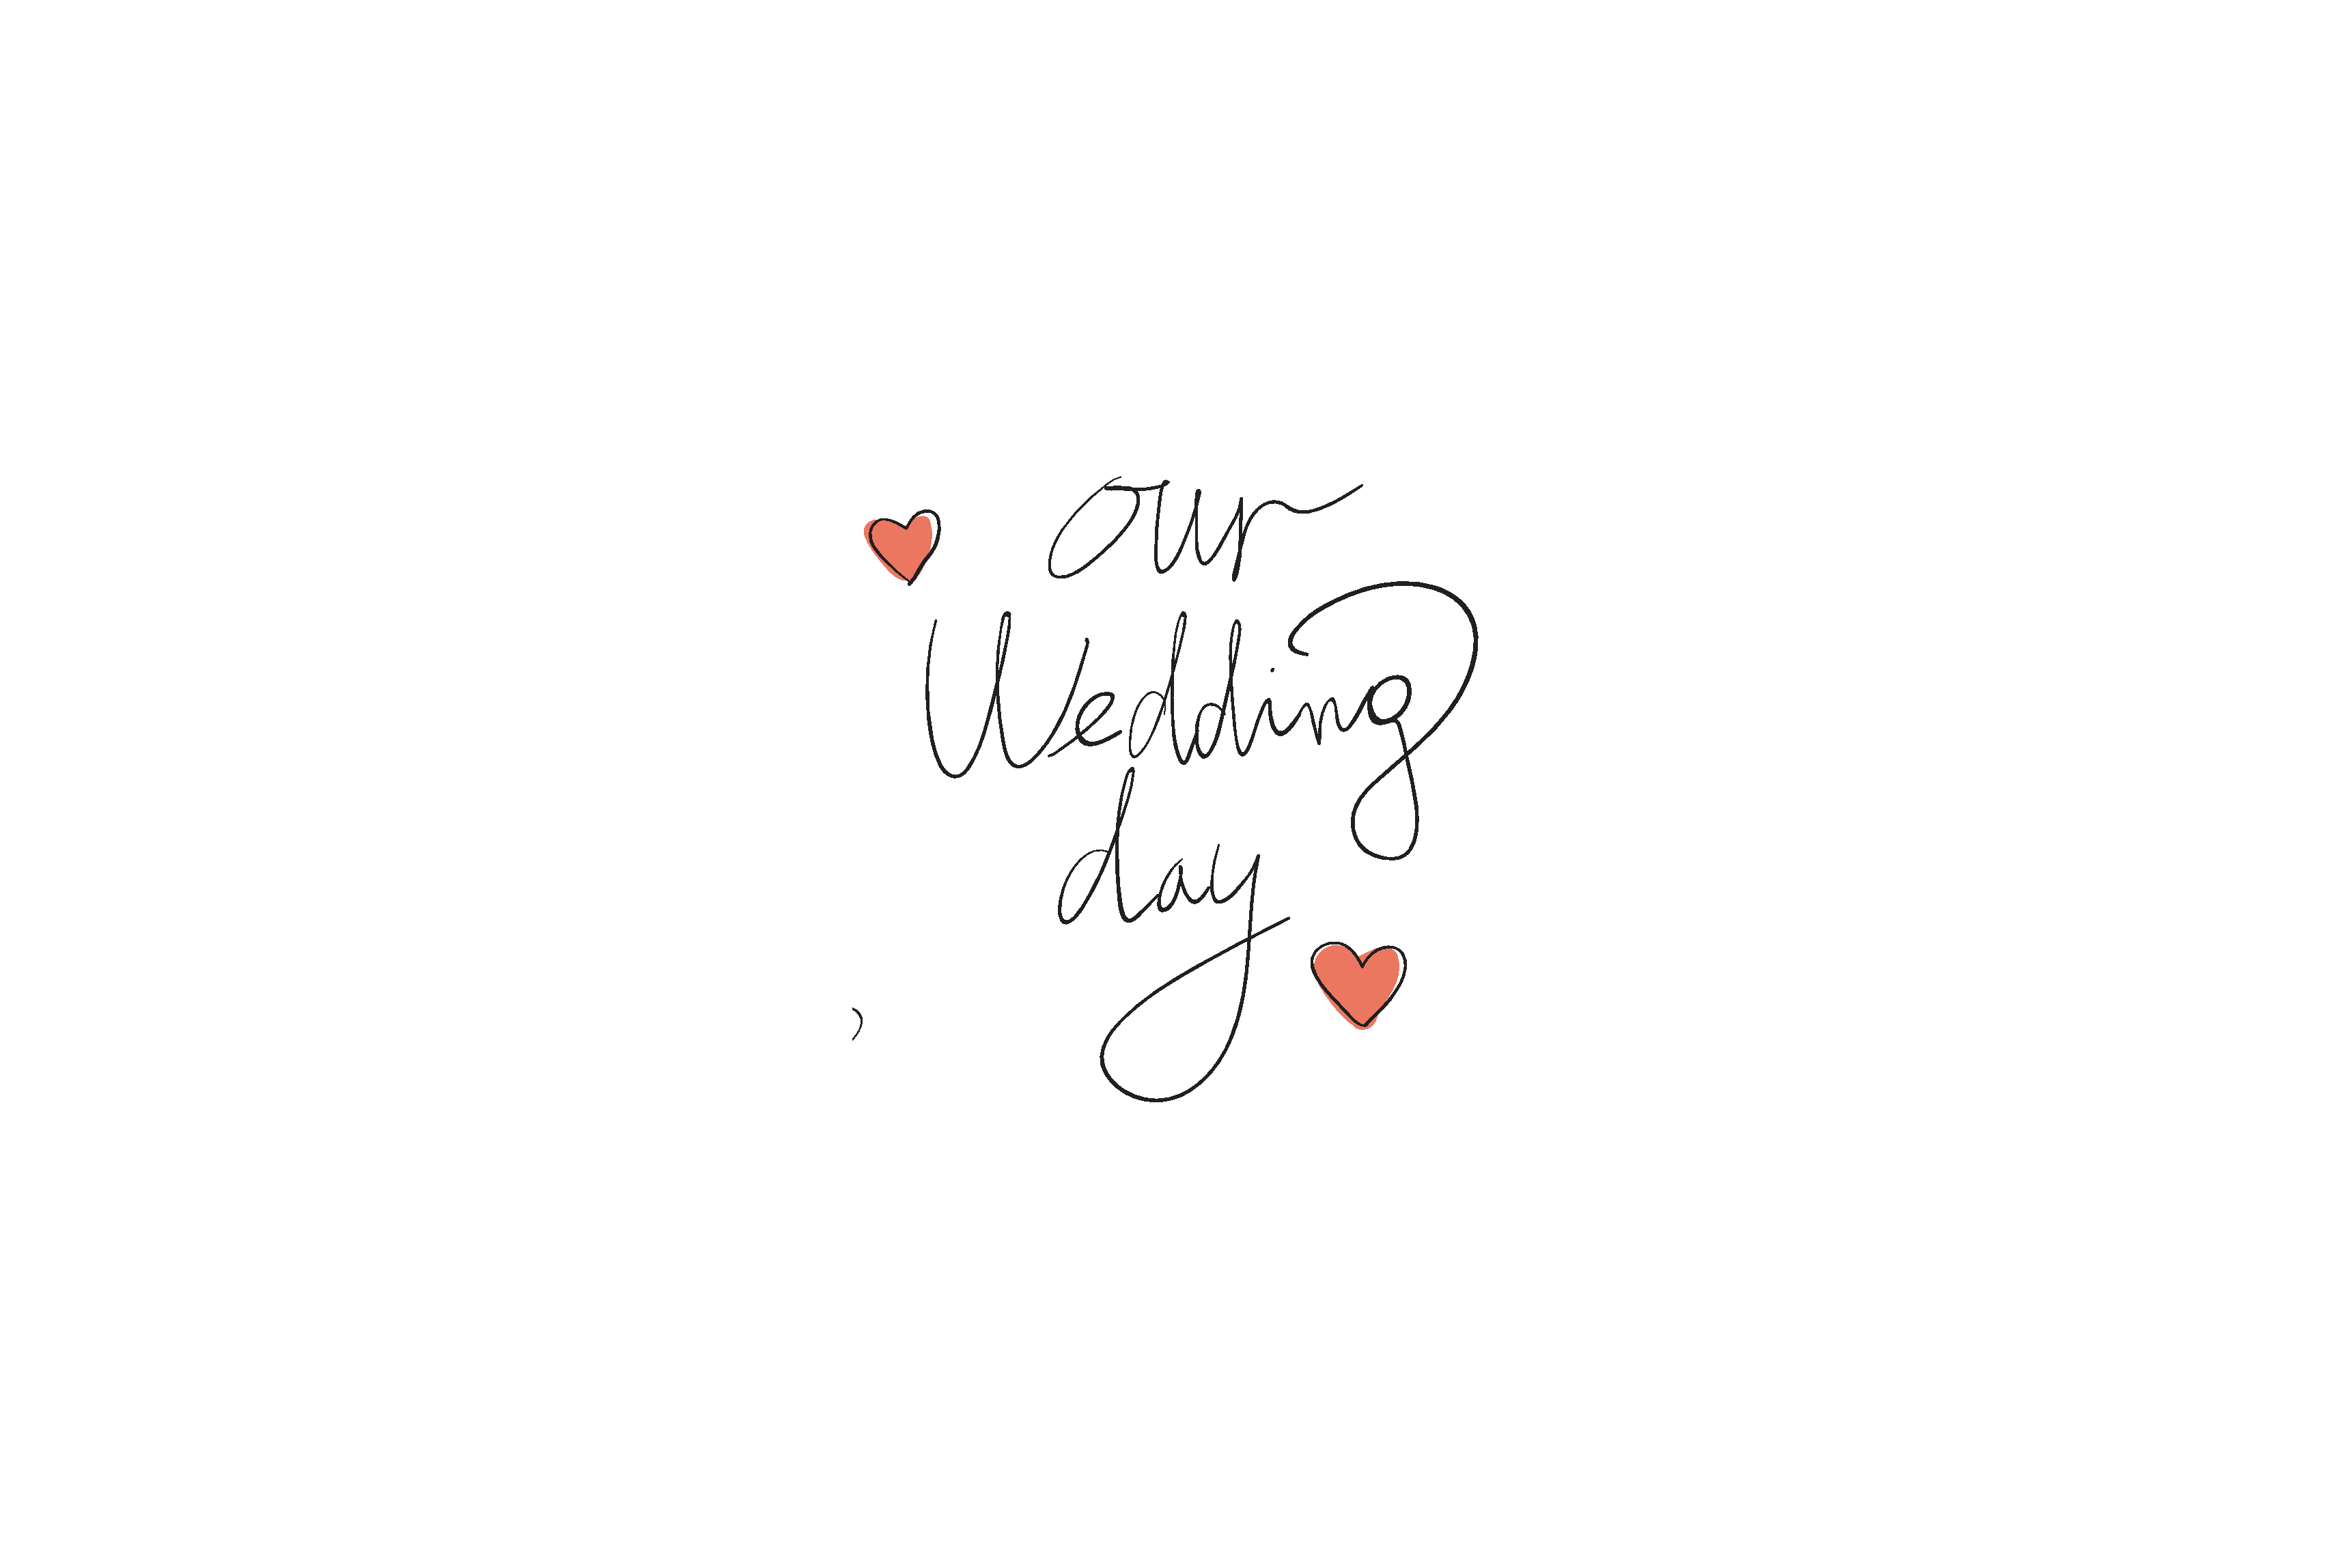 our
Wedding
day